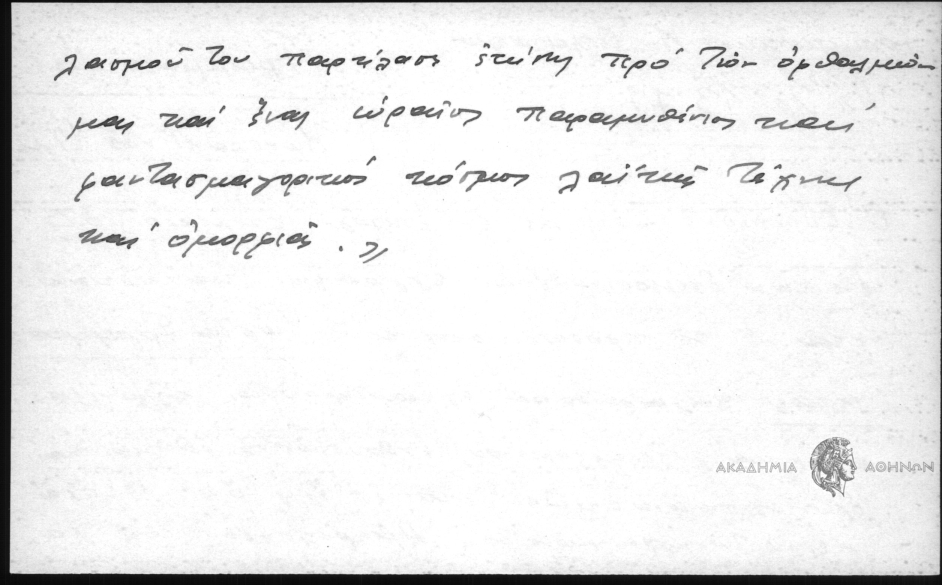 λασμοῦ του παρήλασε ἐκείνη πρό τῶν ὀφθαλμῶν
μας καί ἕνας ὡραῖος παραμυθένιος καί
φαντασμαγορικός κόσμος λαϊκῆς τέχνης
καί ὀμορφιᾶς . »
ΑΚΑΔΗΜΙΑ ΑΘΗΝΩΝ